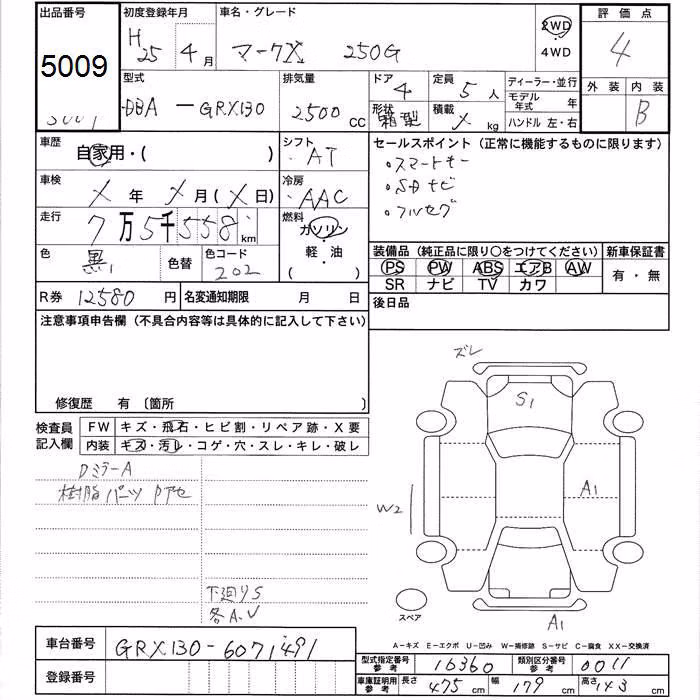 出品番号 初度登録年月 車名・グレード 評価点
5009 H25年4月 マークX 250G 2WD 4WD 4
型式 排気量 ドア 定員 ディーラー・並行 外装 内装
DBA-GRX130 2500cc 4 5人 モデル年式 年 B
形状 積載 ハンドル 左・右
箱型 X kg
車歴 自家用・( ) シフト AT セールスポイント (正常に機能するものに限ります)
車検 X年X月(X日) 冷房 AAC ・スマートキー
・SDナビ
走行 7万5千558km 燃料 ガソリン・軽・油・( ) ・フルセグ
色 黒 色替 色コード 202 装備品 (純正品に限り○をつけてください) 新車保証書
PS PW ABS エアB AW 有・無
SR ナビ TV カワ
R券 12580円 名変通知期限 月 日 後日品
注意事項申告欄 (不具合内容等は具体的に記入して下さい)
修復歴 有 〔箇所 〕
検査員記入欄 FW キズ・飛石・ヒビ割・リペア跡・X要
内装 キズ・汚レ・コゲ・穴・スレ・キレ・破レ
DミラーA
樹脂パーツ
下廻りS
各A、U
ズレ
S1
A1
W2
A1
スペア
A-キズ E-エクボ U-凹み W-補修跡 S-サビ C-腐食 XX-交換済
車台番号 GRX130-6071491
登録番号
型式指定番号参考 16360 類別区分番号参考 0011
車庫証明用参考 長さ 475cm 幅 179cm 高さ 143cm